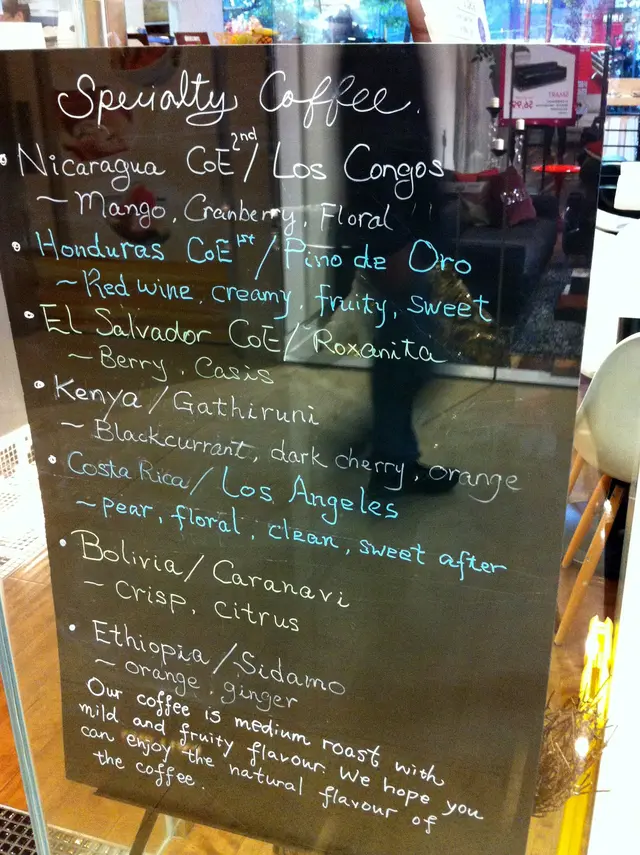 Specialty Coffee.
Nicaragua CoE 2nd / Los Congos
~ Mango, Cranberry, Floral
Honduras CoE 1st / Pino de Oro
~ Red wine, creamy, fruity, sweet
El Salvador CoE / Roxanita
~ Berry, Casis
Kenya / Gathiruni
~ Blackcurrant, dark cherry, orange
Costa Rica / Los Angeles
~ pear, floral, clean, sweet after
Bolivia / Caranavi
~ crisp, citrus
Ethiopia / Sidamo
~ orange, ginger
Our coffee is medium roast with
mild and fruity flavour. We hope you
can enjoy the natural flavour of
the coffee.